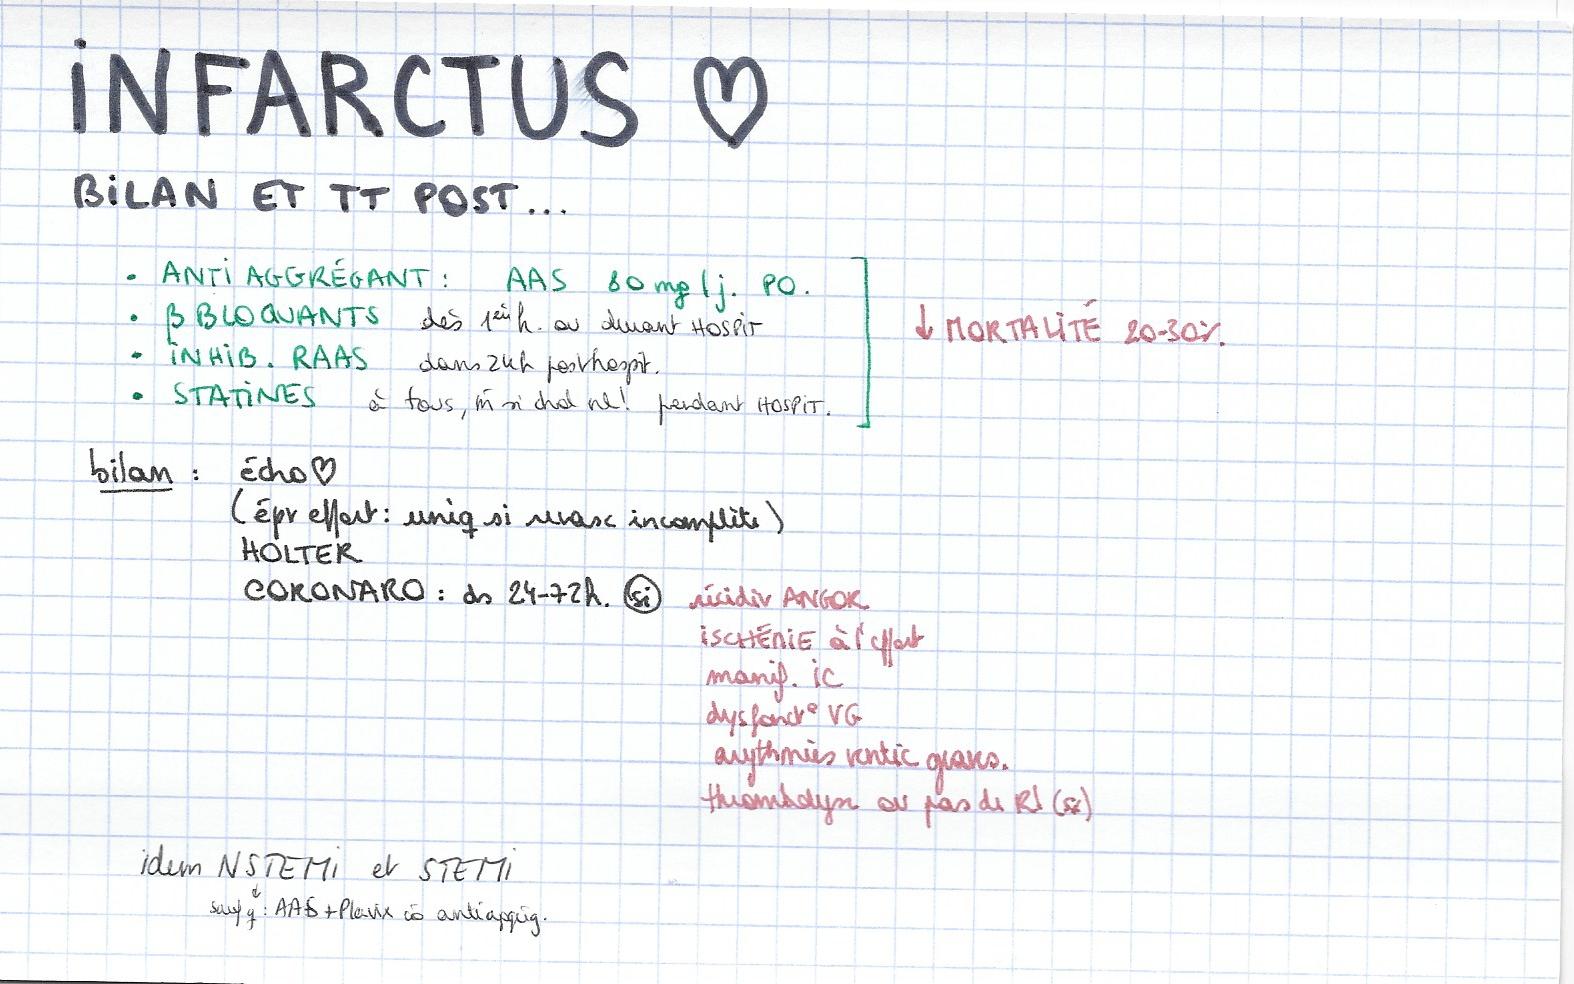 iNFARCTUS ♡
BiLAN ET TT POST...
• ANTi AGGRÉGANT : AAS 80 mg/j. PO.
• β BLOQUANTS dès 1èreh. ou durant HOSPiT
• iNHiB. RAAS dans 24h posthospit.
• STATiNES à tous, m̂ si chol nl! pendant HOSPiT.
↓ MORTALiTÉ 20-30%.
bilan : écho♡
(épr effort : uniq si revasc incomplète)
HOLTER
CORONARO : ds 24-72h. si récidiv ANGOR
iSCHÉMiE à l'effort
manif. iC
dysfonct° VG
arythmies ventric graves.
thrombolyse ou pas de R/
idem NSTEMi et STEMi
↓
sauf q : AAS + Plavix co antiaggrég.